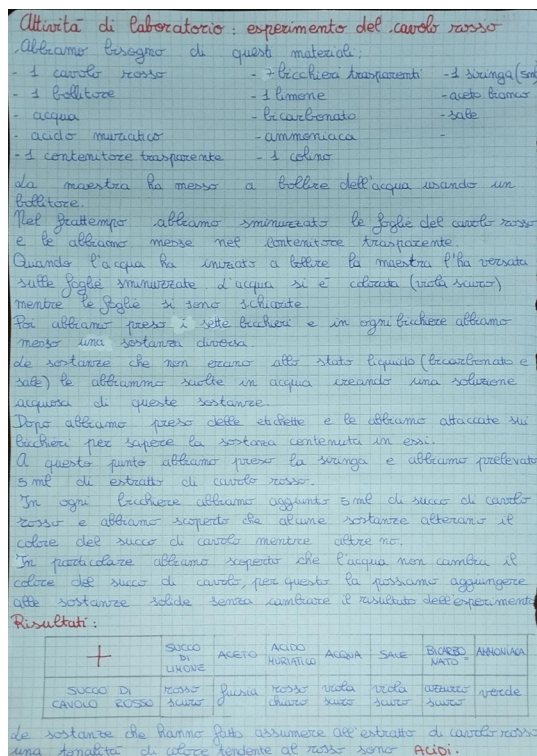 Attività di laboratorio : esperimento del cavolo rosso
Abbiamo bisogno di questi materiali:
- 1 cavolo rosso - 7 bicchieri trasparenti - 1 siringa (5ml
- 1 bollitore - 1 limone - aceto bianco
- acqua - bicarbonato - sale
- acido muriatico - ammoniaca -
- 1 contenitore trasparente - 1 colino
La maestra ha messo a bollire dell'acqua usando un
bollitore.
Nel frattempo abbiamo sminuzzato le foglie del cavolo rosso
e le abbiamo messe nel contenitore trasparente.
Quando l'acqua ha iniziato a bollire la maestra l'ha versata
sulle foglie sminuzzate. L'acqua si è colorata (viola scuro)
mentre le foglie si sono schiarite.
Poi abbiamo preso i sette bicchieri e in ogni bicchiere abbiamo
messo una sostanza diversa.
Le sostanze che non erano allo stato liquido (bicarbonato e
sale) le abbiammo sciolte in acqua creando una soluzione
acquosa di queste sostanze.
Dopo abbiamo preso delle etichette e le abbiamo attaccate sui
bicchieri per sapere la sostanza contenuta in essi.
A questo punto abbiamo preso la siringa e abbiamo prelevato
5 ml di estratto di cavolo rosso.
In ogni bicchiere abbiamo aggiunto 5 ml di succo di cavolo
rosso e abbiamo scoperto che alcune sostanze alterano il
colore del succo di cavolo mentre altre no.
In particolare abbiamo scoperto che l'acqua non cambia il
colore del succo di cavolo, per questo la possiamo aggiungere
alle sostanze solide senza cambiare il risultato dell'esperimento
Risultati:
+ SUCCO DI LIMONE ACETO ACIDO MURIATICO ACQUA SALE BICARBONATO AMMONIACA
SUCCO DI CAVOLO ROSSO rosso scuro fucsia rosso chiaro viola scuro viola scuro azzurro scuro verde
Le sostanze che hanno fatto assumere all'estratto di cavolo rosso
una tonalità di colore tendente al rosso sono ACIDI.